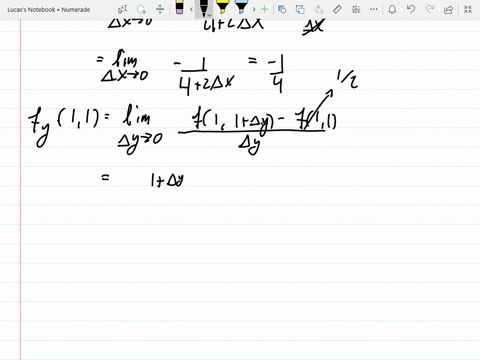 Lucas's Notebook + Numerade
Δx→0 4+2Δx Δx
= lim Δx→0 - 1/(4+2Δx) = -1/4
1/2
f_y (1,1) = lim Δy→0 (f(1, 1+Δy) - f(1,1))/Δy
= 1+Δy